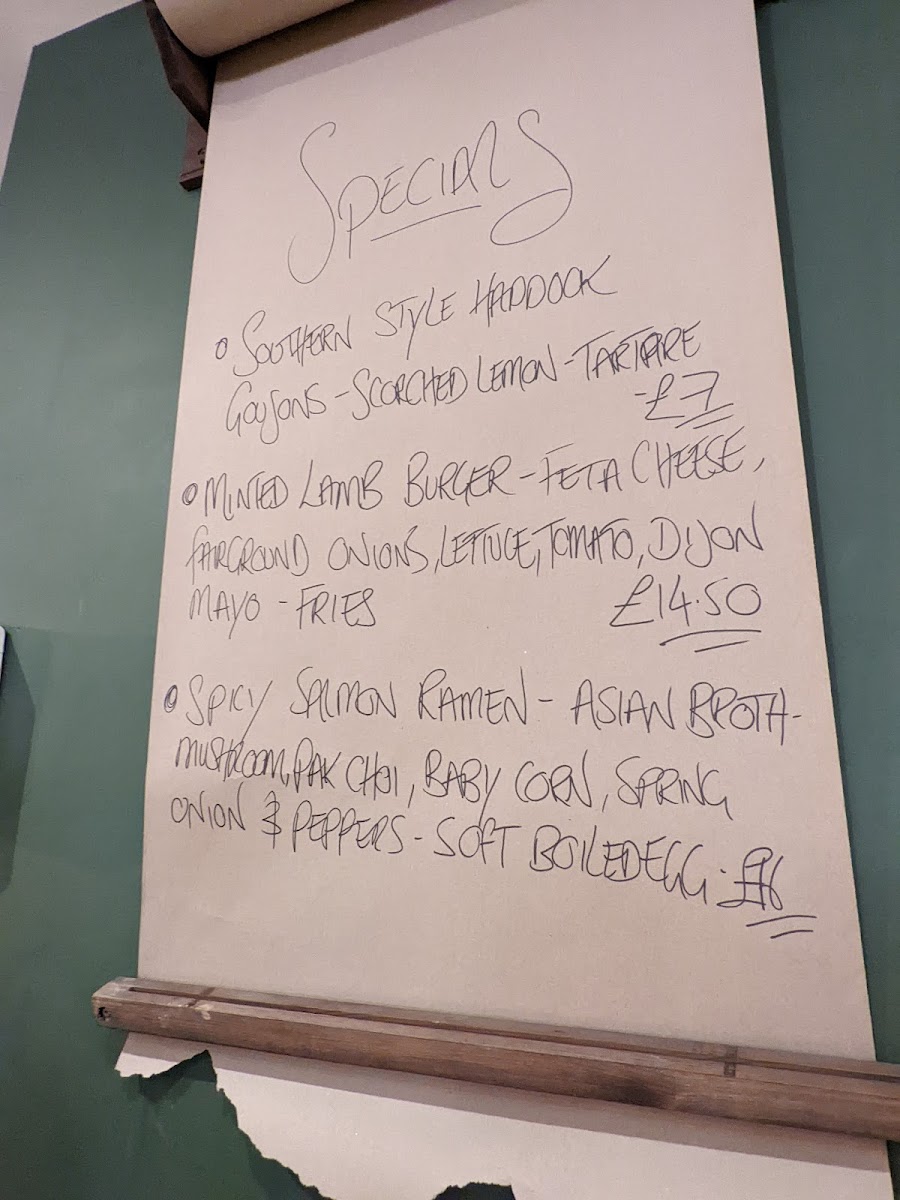 SPECIALS
SOUTHERN STYLE HADDOCK
GOUJONS - SCORCHED LEMON - TARTARE
- £7
MINTED LAMB BURGER - FETA CHEESE,
FAIRGROUND ONIONS, LETTUCE, TOMATO, DIJON
MAYO - FRIES £14.50
SPICY SALMON RAMEN - ASIAN BROTH -
MUSHROOM, PAK CHOI, BABY CORN, SPRING
ONION & PEPPERS - SOFT BOILED EGG - £16